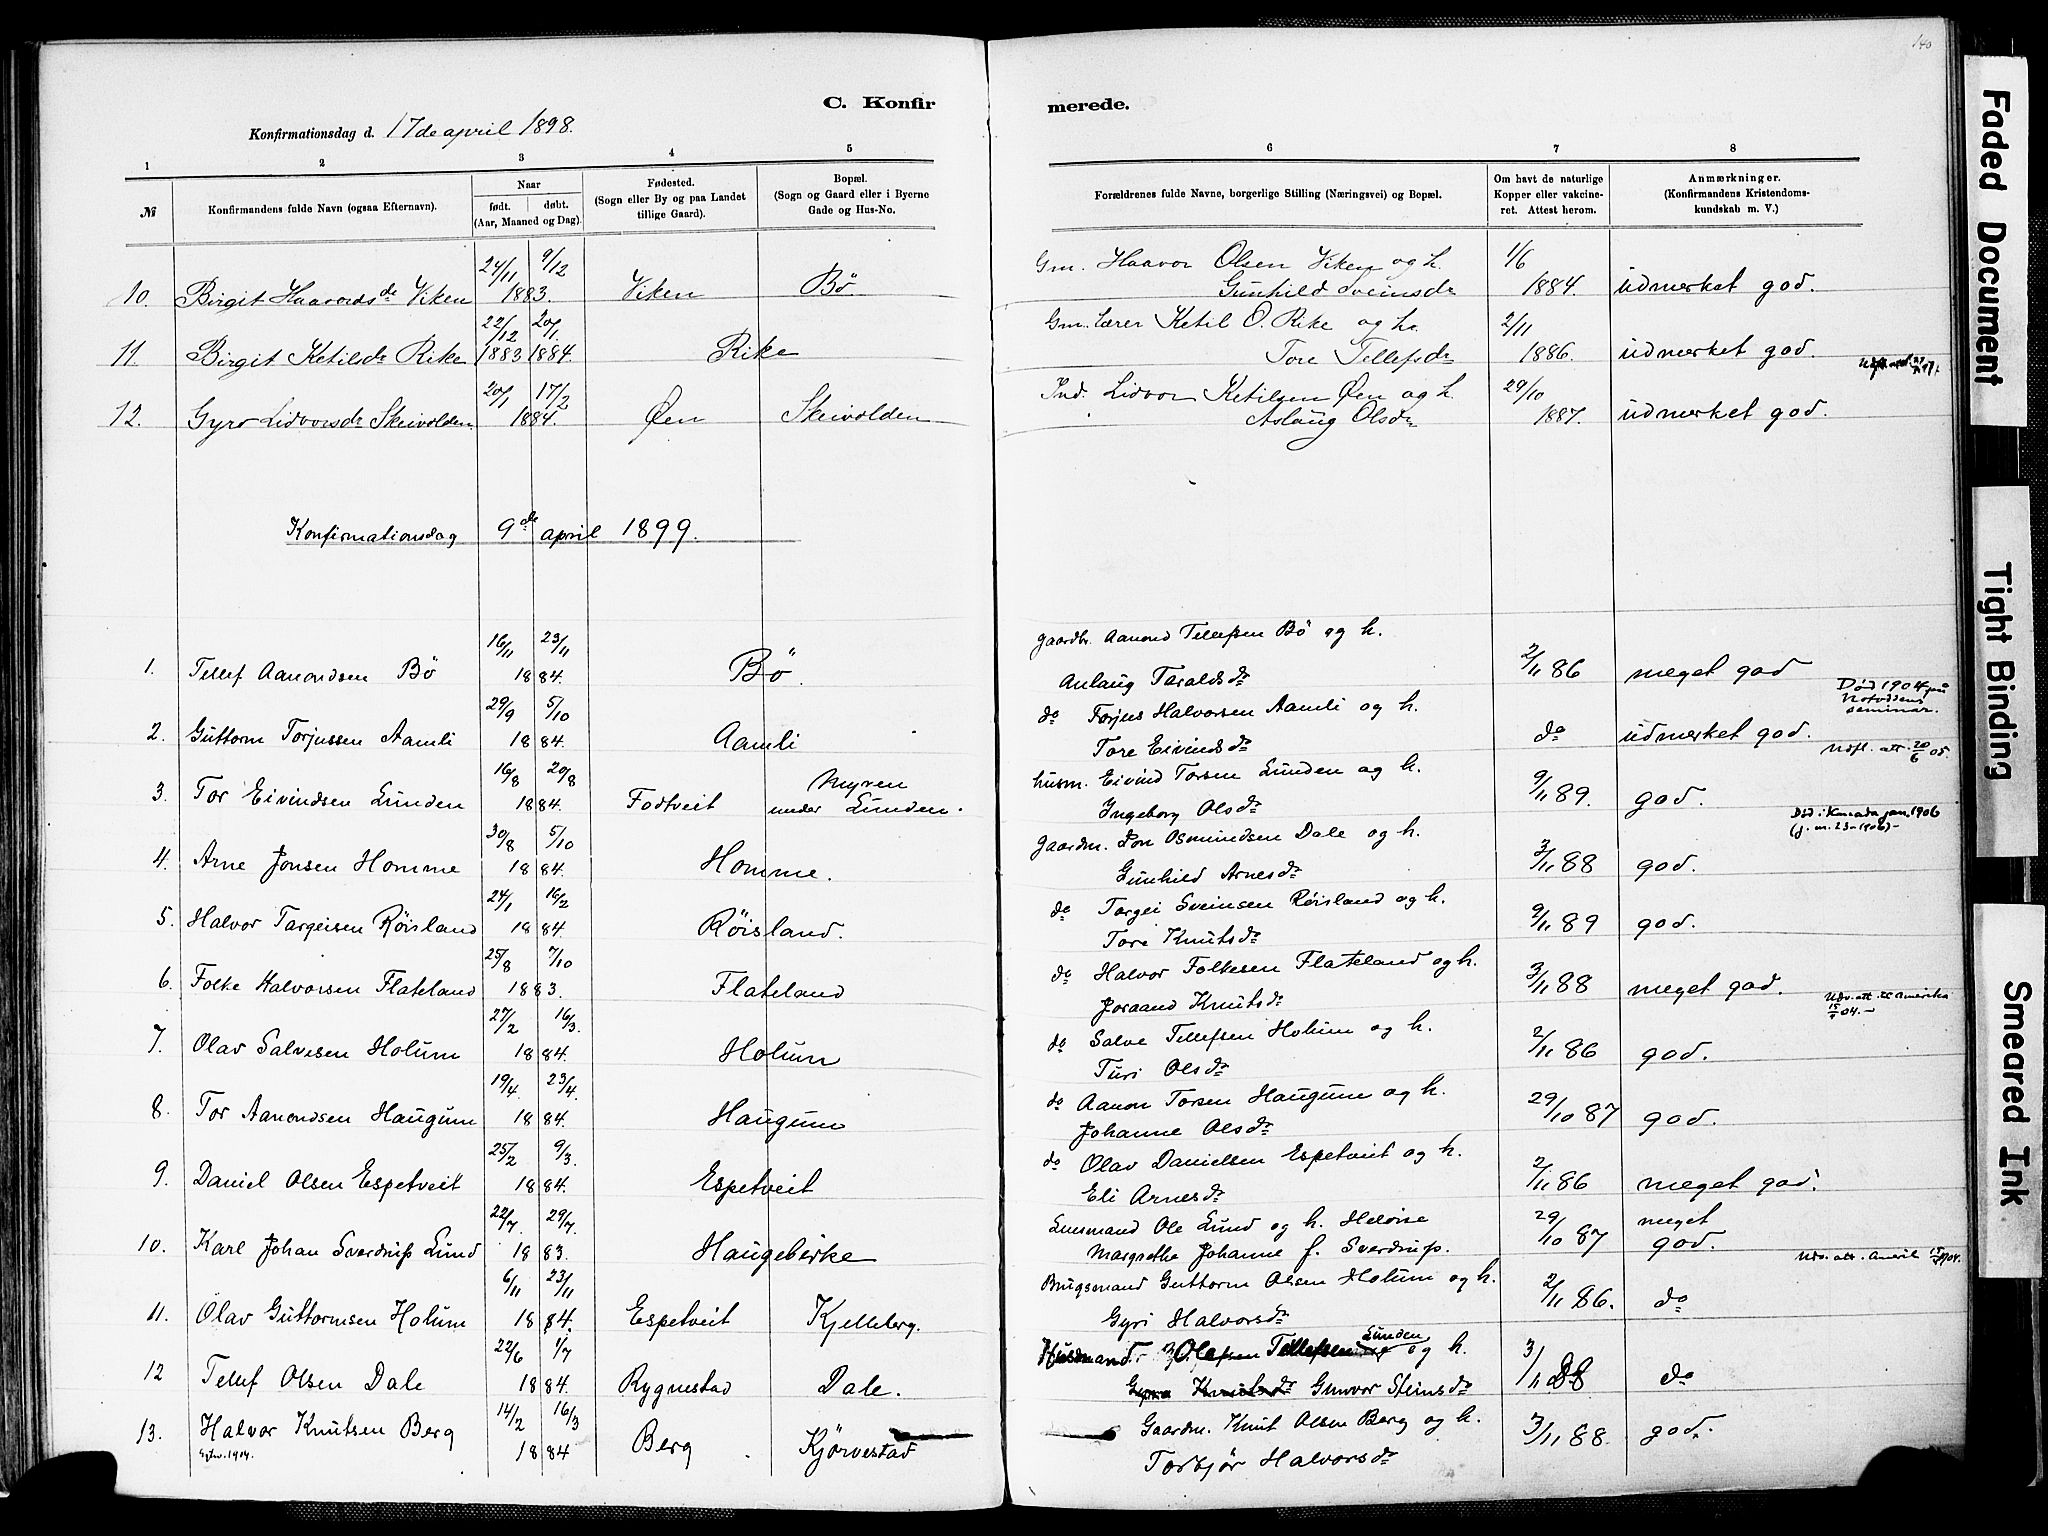 140
C. Konfirmerede.
Konfirmationsdag d. 17de april 1898.
1 2 3 4 5 6 7 8
№
Konfirmandens fulde Navn (ogsaa Efternavn).
Naar
født. døbt.
(Aar, Maaned og Dag).
Fødested.
(Sogn eller By og paa Landet
tillige Gaard).
Bopæl.
(Sogn og Gaard eller i Byerne
Gade og Hus-No.
Forældrenes fulde Navne, borgerlige Stilling (Næringsvei) og Bopæl.
Om havt de naturlige
Kopper eller vakcine-
ret. Attest herom.
Anmærkninger.
(Konfirmandens Kristendoms-
kundskab m. V.)
24/11 9/12 Gm. Haavor Olsen Viken og h. 1/6
10. Birgit Haavordsdr Viken 1883. Viken Bø Gunhild Sveinsdr 1884. udmerket god.
22/12 20/1 Gm. lærer Ketil O. Rike og h. 2/11
11. Birgit Ketilsdr Rike 1883 1884. Rike Tore Tellefsdr 1886. udmerket god.
20/1 17/2 Ind. Lidvor Ketilsen Øen og h. 29/10
12. Gyro Lidvorsdr Skeivolden 1884. Øen Skeivolden Aslaug Olsdr 1887. udmerket god.
Konfirmationsdag 9de april 1899.
16/11 23/11 gaardbr. Aanond Tellefsen Bö og h.
1. Tellef Aanondsen Bö 1884. Bö. Anlaug Taraldsdr 2/11 86 meget god
Död 1904 på
Notoddens
seminar.
29/9 5/10 do Torjus Halvorsen Aamli og h.
2. Guttorm Torjussen Aamli 1884. Aamli Tore Eivindsdr do udmerket god.
Udfl. att. 20/6 05.
16/8 20/8 Myren husm. Eivind Torsen Lunden og h.
3. Tor Eivindsen Lunden 1884. Fodtveit under Lunden. Ingeborg Olsdr 9/11 89. god.
Död i Kanada jan. 1906
(j. m. 23-1906)-
30/8 5/10 Gaardm. Jon Osmundsen Dale og h.
4. Arne Jonsen Homme 1884. Homme. Gunhild Arnesdr 3/11 88 god.
24/1 16/2 do Torgei Sveinsen Röisland og h.
5. Halvor Targeisen Röisland 1884 Röisland. Tore Knutsdr 9/11 89 god.
25/8 7/10 do Halvor Folkesen Flateland og h.
6. Folke Halvorsen Flateland 1883. Flateland Joraand Knutsdr 3/11 88 meget god.
Udv. att. til Amerika
04.-
27/2 16/3. do Salve Tellefsen Holum og h.
7. Olav Salvesen Holum 1884. Holum Turi Olsdr 2/11 86 god.
19/4. 23/4. do Aanon Torsen Haugum og h.
8. Tor Aanondsen Haugum 1884. Haugum Johanne Olsdr 29/10 87 god.
25/2 9/3. do Olav Danielsen Espetveit og h.
9. Daniel Olsen Espetveit 1884. Espetveit Eli Arnesdr 2/11 86 meget god.
22/7. 29/7. Lensmand Ole Lund og h. Heloise meget
10. Karl Johan Sverdrup Lund 1883. Haugebirke Margrethe Johanne f. Sverdrup. 29/10 87 god.
Udv. att. Amerik
6/11 23/11 Brugsmand Guttorm Olsen Holum og h.
11. Olav Guttormsen Holum 1884. Espetveit Kjelleberg. Gyri Halvorsdr 2/11 86. do
22/6 1/7 Husmand Tellefsen Lunden og h.
12 Tellef Olsen Dale 1884. Rygnestad Dale. Gunvor Steinsdr 3/11 88 do
14/2 16/3 Gaardm. Knut Olsen Berg og h.
13. Halvor Knutsen Berg 1884 Berg Kjörvestad Torbjör Halvorsdr 3/11 88. god.
1904.
Faded Document
Tight Binding
Smeared Ink